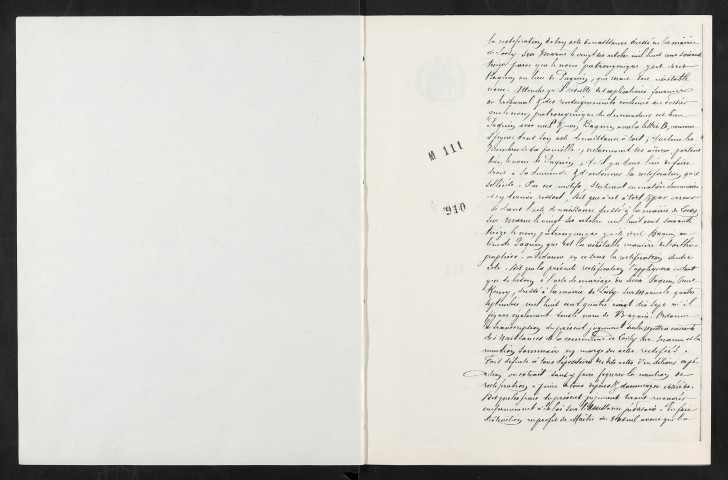 M 111
910
la rectification de son acte de naissance dressé à la mairie
de Loisy sur Marne le vingt six octobre mil huit cent soixante
treize parce que le nom patronymique y est écrit
Baquin au lieu de Paquin, qui serait son véritable
nom. Attendu qu'il résulte des explications fournies
au tribunal et des renseignements contenus au dossier
que le nom patronymique du demandeur est bien
Paquin avec un P et non Baquin avec la lettre B, comme
il figure dans son acte de naissance à tort, que tous les
membres de sa famille, notamment les aïeux, portent
bien le nom de Paquin, qu'il y a donc lieu de faire
droit à sa demande et d'ordonner la rectification qu'il
sollicite. Par ces motifs, statuant en matière sommaire
et en premier ressort, dit que c'est à tort et par erreur
que dans l'acte de naissance dressé à la mairie de Loisy
sur Marne le vingt six octobre mil huit cent soixante
treize le nom patronymique y a été écrit Baquin au
lieu de Paquin, que est la véritable manière de l'ortho-
graphier. Ordonne en ce sens la rectification dudit
acte. Dit que la présente rectification s'appliquera autant
que de besoin à l'acte de mariage du sieur Paquin
dressé à la mairie de Loisy sur Marne le quatre
septembre mil huit cent quatre vingt dix sept où il
figure également sous le nom de Baquin. Ordonne
la transcription du présent jugement sur les registres courants
des naissances de la commune de Loisy sur Marne et la
mention sommaire en marge des actes rectifiés.
Fait défense à tous dépositaires desdits actes d'en délivrer expé-
dition ou extrait sans y faire figurer la mention de
rectification à peine de tous dépens et dommages intérêts.
Dit que les frais du présent jugement seront recouvrés
conformément à la loi sur l'Assistance judiciaire. En fait
distraction au profit de Maître avoué qui la